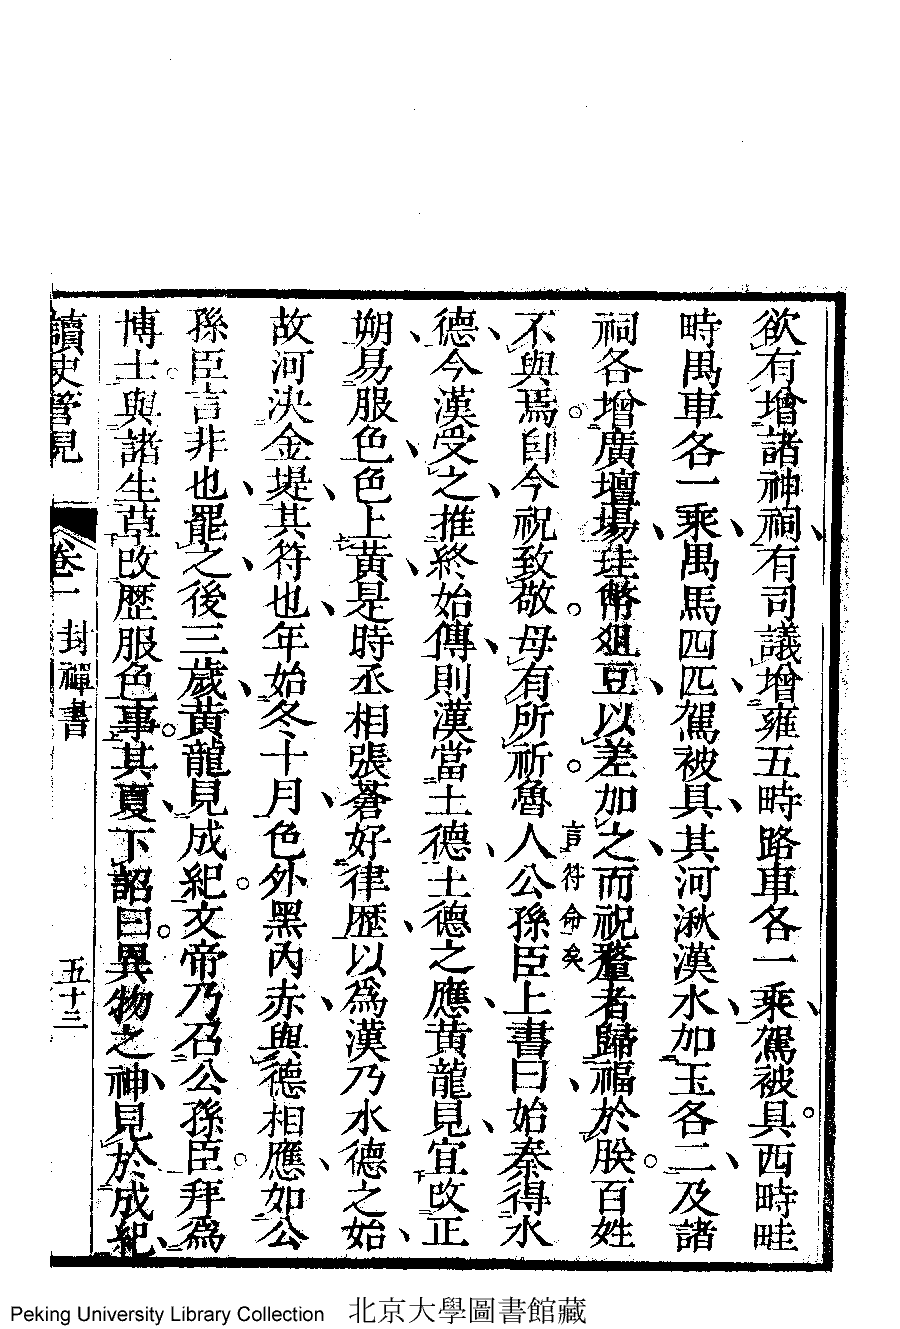 欲有增諸神祠有司議增雍五畤路車各一乘駕被具西畤畦
畤禺車各一乘禺馬四匹駕被具其河湫漢水加玉各二及諸
祠各增廣壇場珪幣俎豆以差加之而祝釐者歸福於朕百姓
不與焉自今祝致敬毋有所祈魯人公孫臣上書曰始秦得水
言符命矣
德今漢受之推終始傳則漢當土德土德之應黃龍見宜改正
朔易服色色上黃是時丞相張蒼好律歷以爲漢乃水德之始
故河決金堤其符也年始冬十月色外黑內赤與德相應如公
孫臣言非也罷之後三歲黃龍見成紀文帝乃召公孫臣拜爲
博士與諸生草改歷服色事其夏下詔曰異物之神見於成紀
讀史管見
卷一 封禪書
五十三
Peking University Library Collection 北京大學圖書館藏